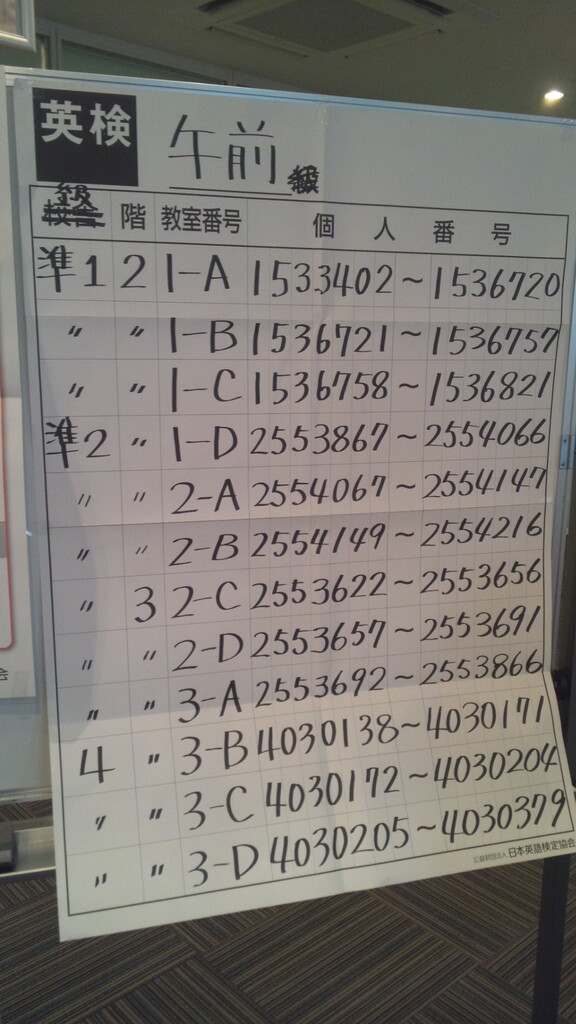 英検
午前
級
階 教室番号 個人番号
準1 2 1-A 1533402~1536720
〃 〃 1-B 1536721~1536757
〃 〃 1-C 1536758~1536821
準2 〃 1-D 2553867~2554066
〃 〃 2-A 2554067~2554147
〃 〃 2-B 2554149~2554216
〃 3 2-C 2553622~2553656
〃 〃 2-D 2553657~2553691
〃 〃 3-A 2553692~2553866
4 〃 3-B 4030138~4030171
〃 〃 3-C 4030172~4030204
〃 〃 3-D 4030205~4030379
公益財団法人 日本英語検定協会
会